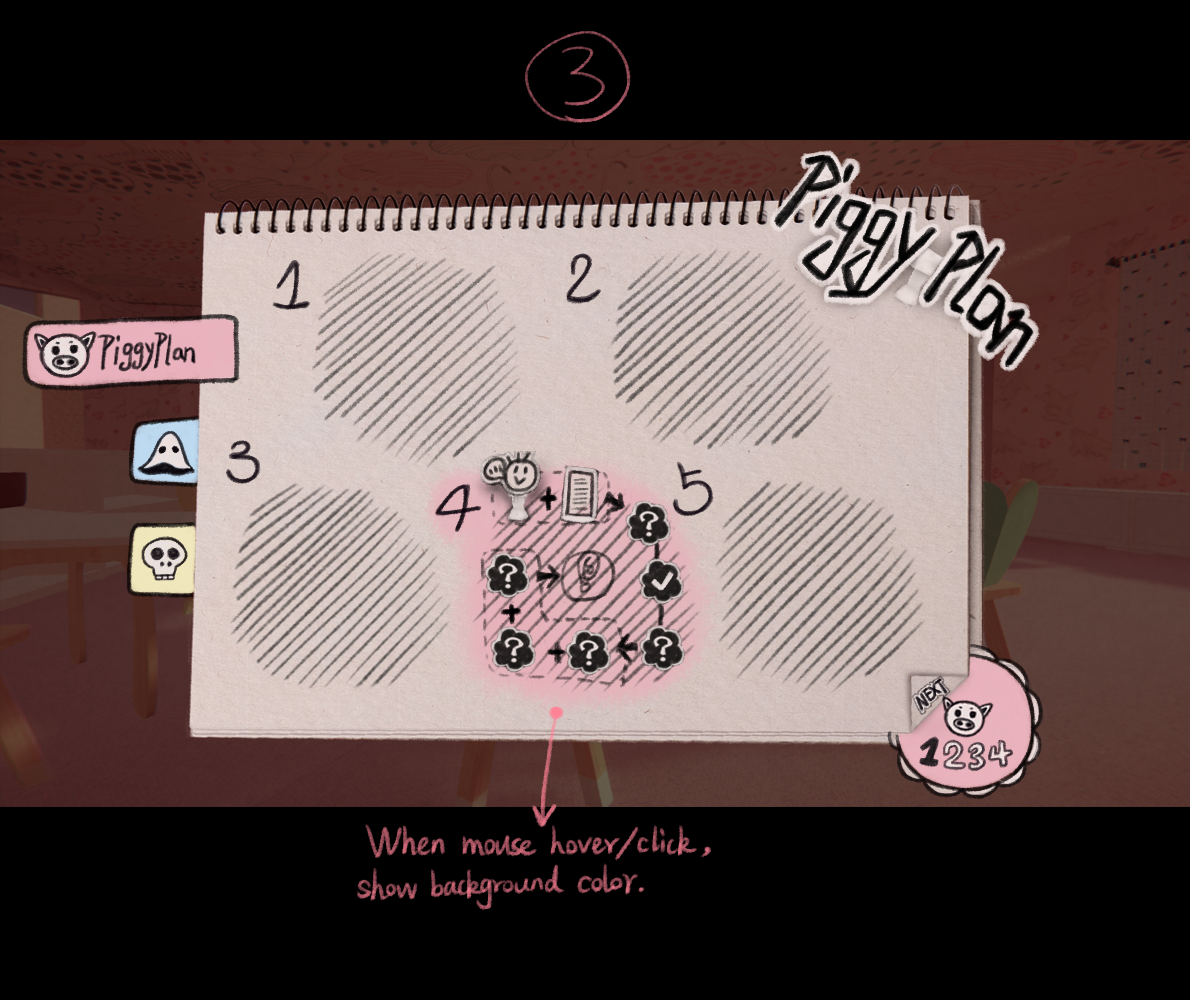 3
Piggy Plan
1
2
PiggyPlan
3
4
5
+
?
?
+
?
+
?
?
NEXT
1234
When mouse hover/click,
show background color.